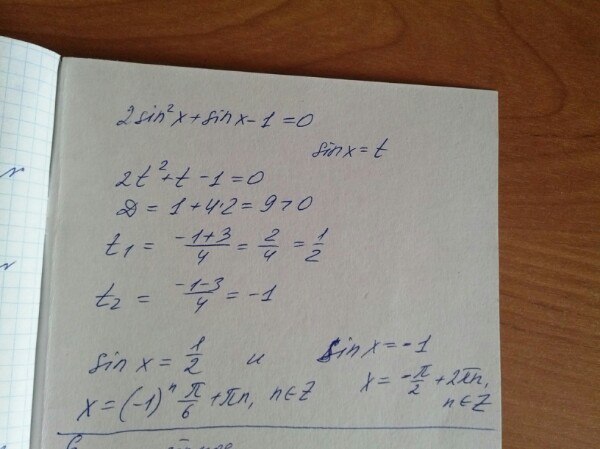 2sin²x+sinx-1=0
sinx=t
2t²+t-1=0
D=1+4·2=9>0
t₁ = (-1+3)/4 = 2/4 = 1/2
t₂ = (-1-3)/4 = -1
sin x = 1/2 и sin x = -1
x = (-1)ⁿ π/6 + πn, n∈Z
x = -π/2 + 2πn,
n∈Z